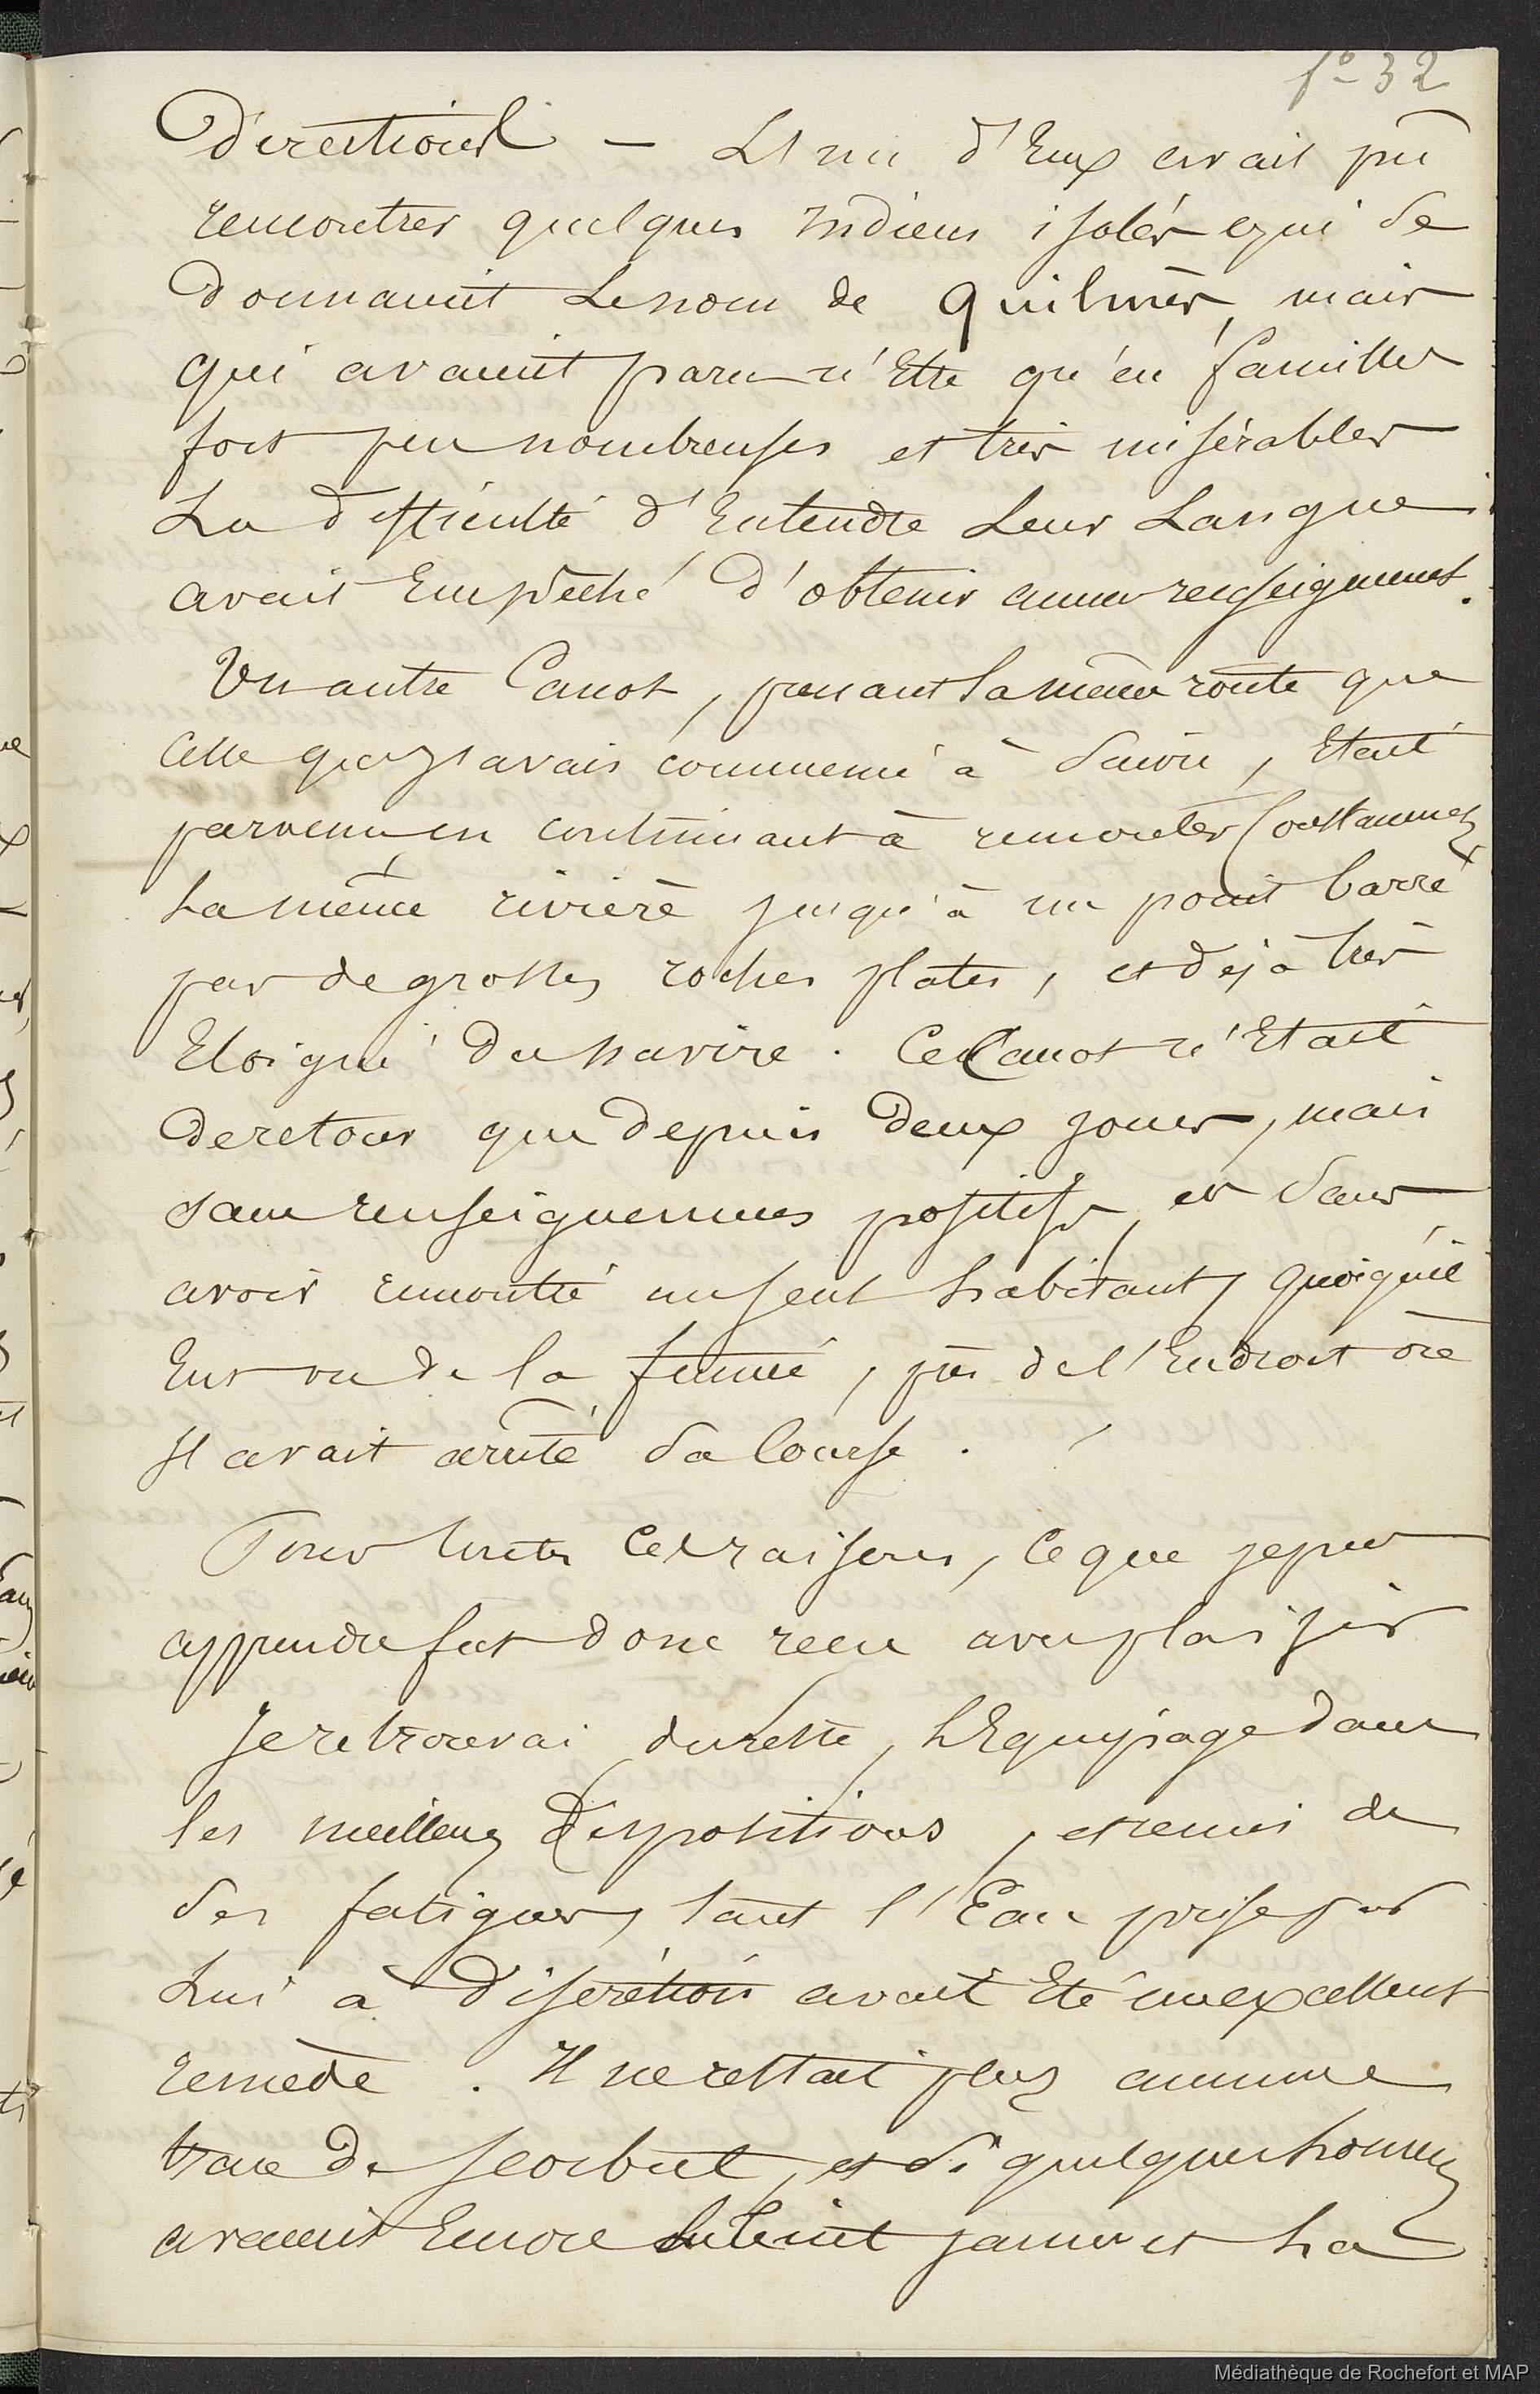 f° 32
Directions — L'un d'Eux avait pû
rencontrer quelques Indiens isolés qui se
donnaient le nom de Quilmès, mais
qui avaient paru n'Etre qu'en familles
fort peu nombreuses et très misérables
La difficulté d'Entendre Leur Langue
avait Empêché d'obtenir aucun renseignement.
Un autre Canot, prenant la même route que
celle que j'avais commencé à Suivre, Etait
parvenu en continuant à remonter Constamment
La même rivière jusqu'à un point barré
par de grosses roches plates, et déjà très
Eloigné du navire. Ce Canot n'Etait
de retour que depuis Deux jours, mais
sans renseignements positifs, et Sans
avoir rencontré un seul habitant, quoiqu'il
Eut vu de la fumée, près de l'Endroit où
Il avait arrêté Sa Course.
Pour toutes Ces raisons, Ce que je pus
apprendre fut donc reçu avec plaisir
Je retrouvai du reste, l'Equipage dans
les meilleures Dispositions, et remis de
Ses fatigues, tant l'Eau prise par
Lui à Discrétion avait Eté un excellent
remède. Il ne restait plus aucune
trace de Scorbut, et Si quelques hommes
avaient Encore le teint jaune et ha
Médiathèque de Rochefort et MAP